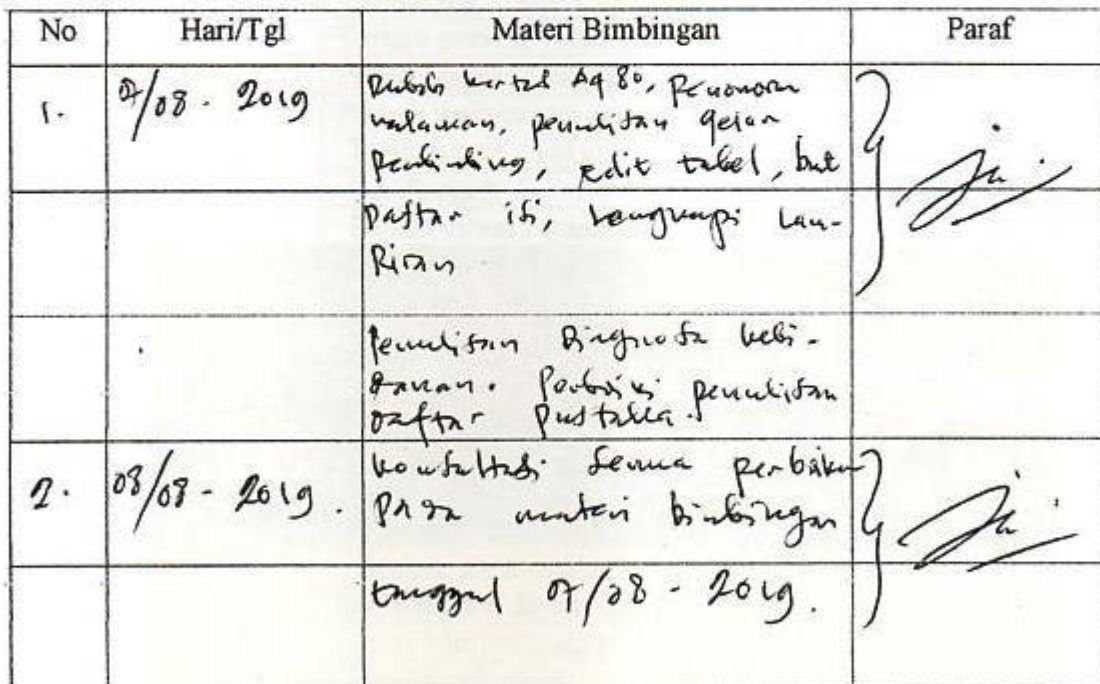 No Hari/Tgl Materi Bimbingan Paraf
1. 07/08 - 2019 kertas A4 80, penomoran
halaman, penulisan gelar
pembimbing, edit tabel, buat
Daftar isi, lengkapi lam-
piran
penulisan Diagnosa kebi-
danan. Perbaiki penulisan
Daftar Pustaka.
2. 08/08 - 2019. konsultasi semua perbaikan
pada materi bimbingan
tanggal 07/08 - 2019.